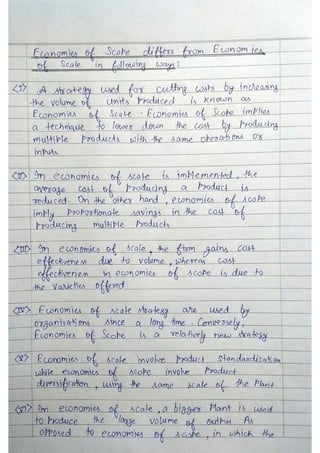 Economies of Scope differs from Economies
of Scale in following ways:
<I> A strategy used for cutting costs by increasing
the volume of units produced is known as
Economies of Scale. Economies of Scope implies
a technique to lower down the cost by producing
multiple products with the same operations or
inputs.
<II> In economies of scale is implemented, the
average cost of producing a product is
reduced. On the other hand, economies of scope
imply proportionate savings in the cost of
producing multiple products.
<III> In economies of scale, the firm gains cost
effectiveness due to volume, whereas cost
effectiveness in economies of scope is due to
the varieties offered
<IV> Economies of scale strategy are used by
organisations since a long time. Conversely,
Economies of Scope is a relatively new strategy
<V> Economies of scale involve product standardisation
while economies of scope involve Product
diversification, using the same scale of the Plant
<VI> In economies of scale, a bigger Plant is used
to produce the large volume of output As
opposed to economies of scope, in which the